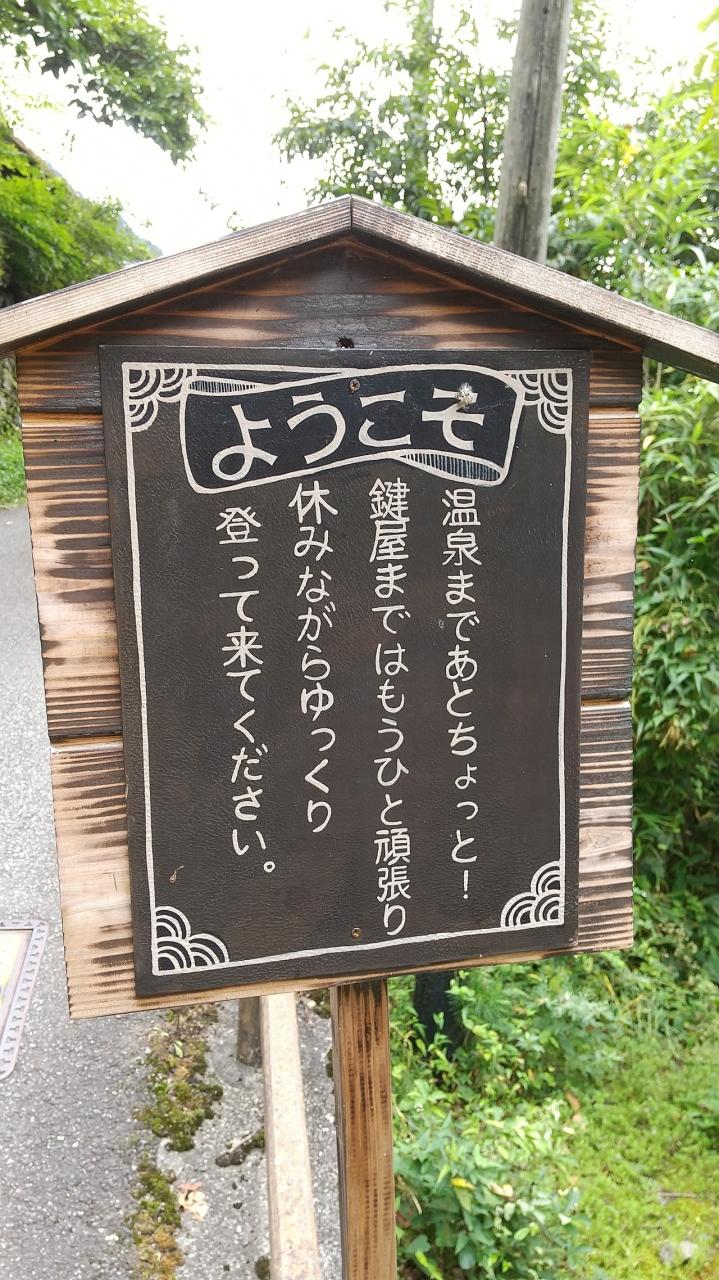 ようこそ
温泉まであとちょっと！
鍵屋まではもうひと頑張り
休みながらゆっくり
登って来てください。